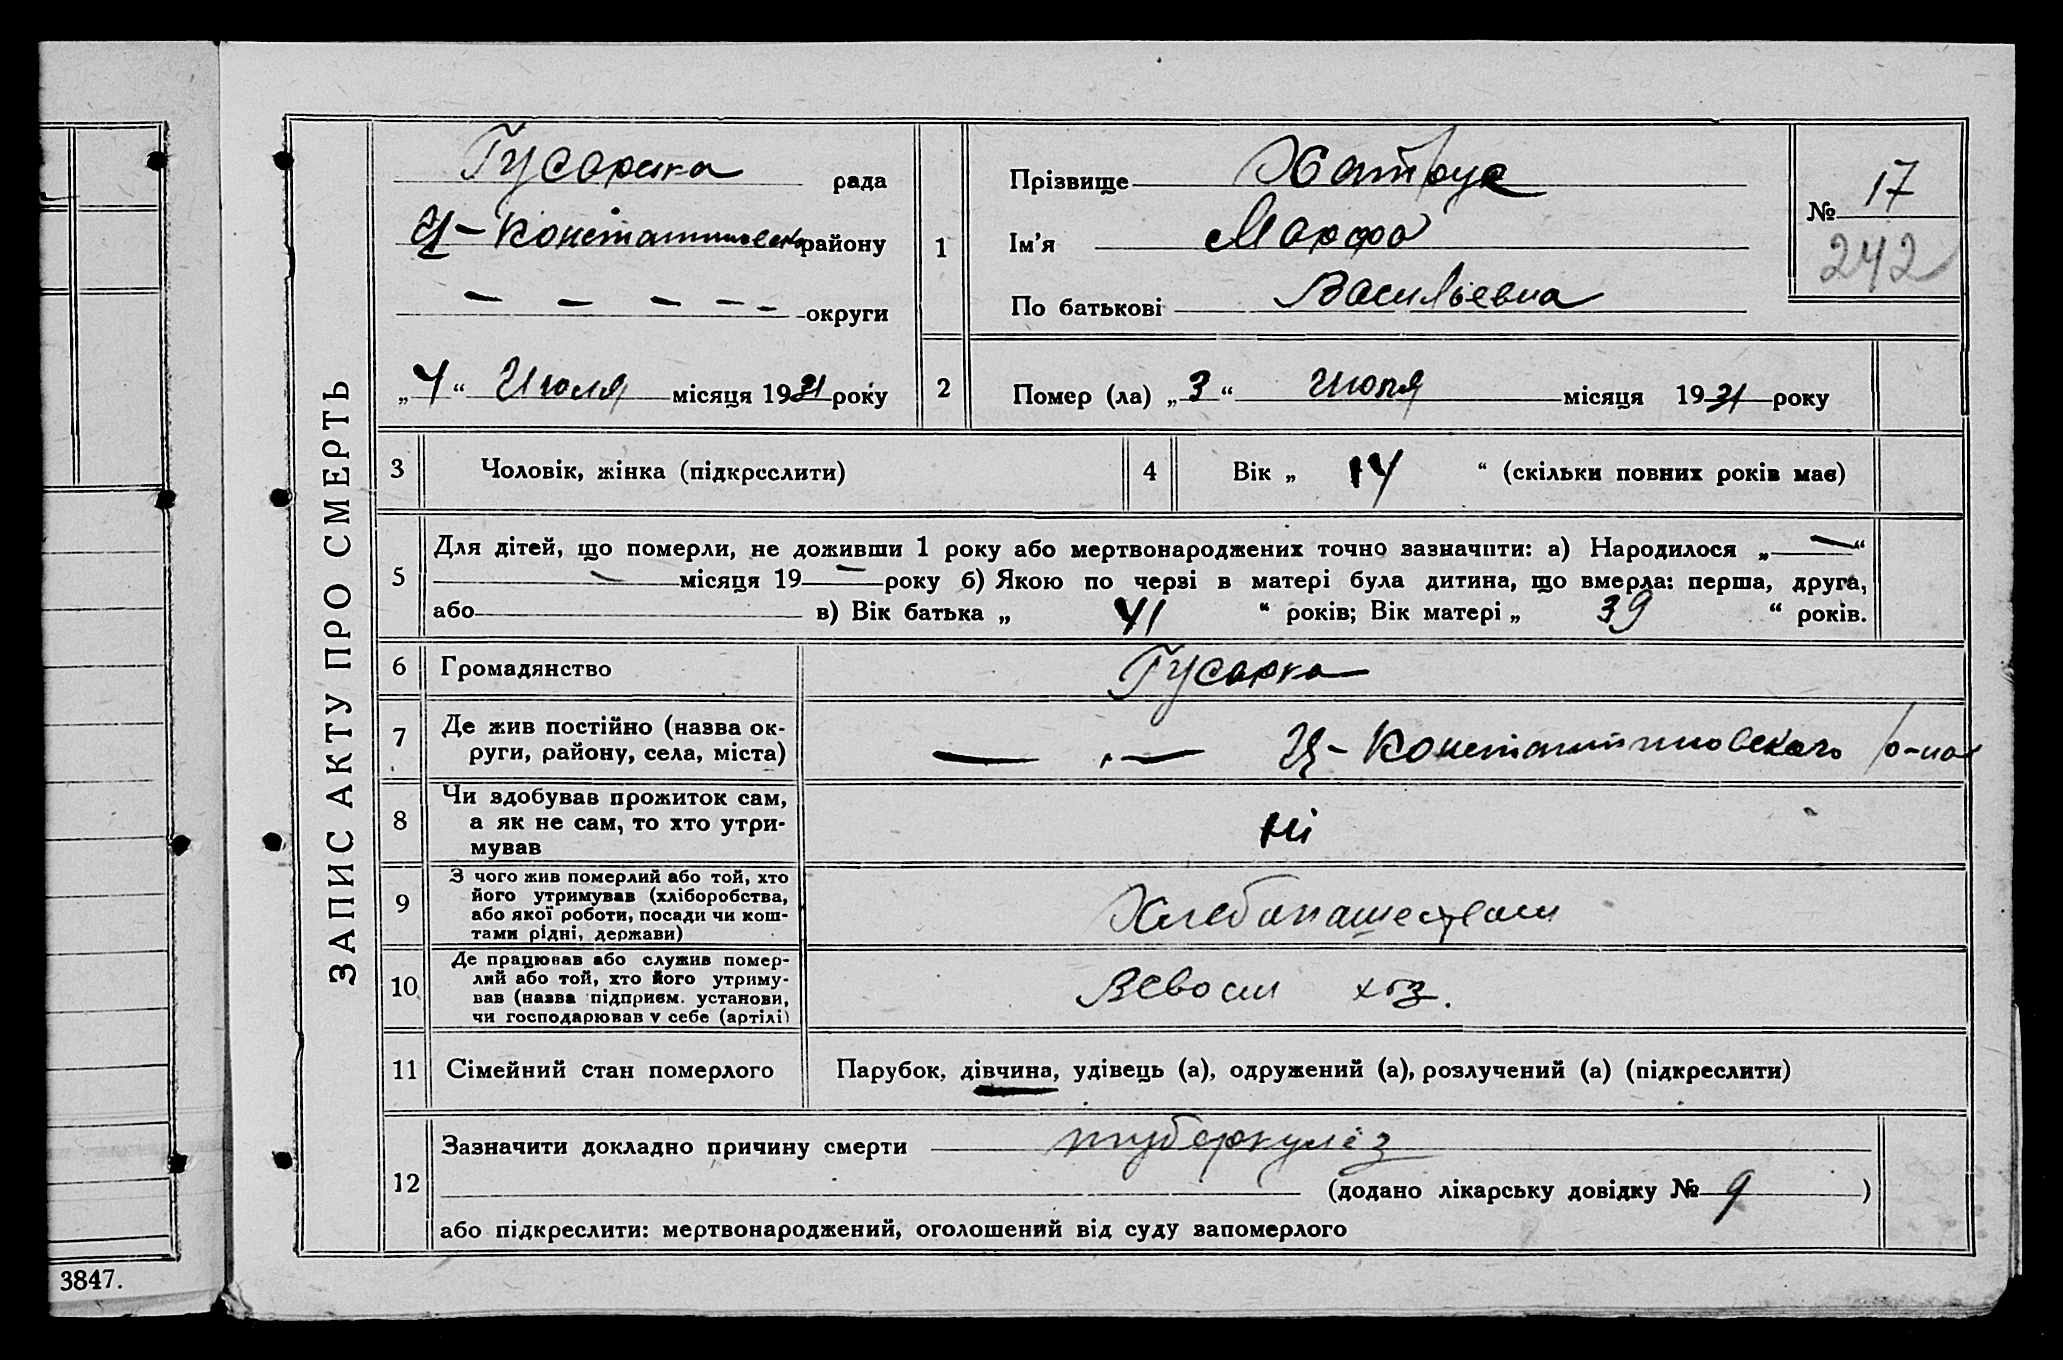 ЗАПИС АКТУ ПРО СМЕРТЬ
Гусарка рада
Ц-Константиновск району
округи
„4“ Июля місяця 1931 року
1
Прізвище
Ім'я Марфа
По батькові Васильевна
№ 17
242
2
Помер (ла) „3“ Июля місяця 1931 року
3
Чоловік, жінка (підкреслити)
4
Вік „ 14 “ (скільки повних років має)
5
Для дітей, що померли, не доживши 1 року або мертвонароджених точно зазначити: а) Народилося „ — “
— місяця 19 — року б) Якою по черзі в матері була дитина, що вмерла: перша, друга,
або в) Вік батька „ 41 “ років; Вік матері „ 39 “ років.
6
Громадянство
Гусарка
7
Де жив постійно (назва ок-
руги, району, села, міста)
Ц-Константиновского р-на
8
Чи здобував прожиток сам,
а як не сам, то хто утри-
мував
Ні
9
З чого жив померлий або той, хто
його утримував (хліборобства,
або якої роботи, посади чи кош-
тами рідні, держави)
10
Де працював або служив помер-
лий або той, хто його утриму-
вав (назва підприєм. установи,
чи господарював у себе (артілі)
хоз.
11
Сімейний стан померлого
Парубок, дівчина, удівець (а), одружений (а), розлучений (а) (підкреслити)
12
Зазначити докладно причину смерти туберкулёз
(додано лікарську довідку № 9 )
або підкреслити: мертвонароджений, оголошений від суду запомерлого
3847.